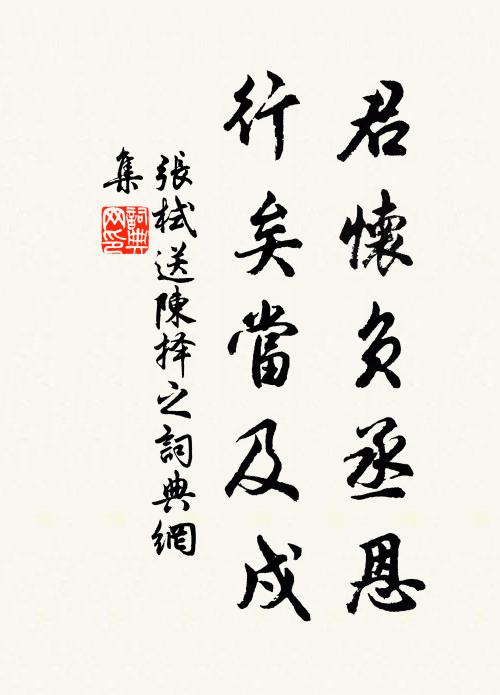 君懷负丞恩
行矣當及戍
張栻送陳择之詞典網
集
詞典
网印